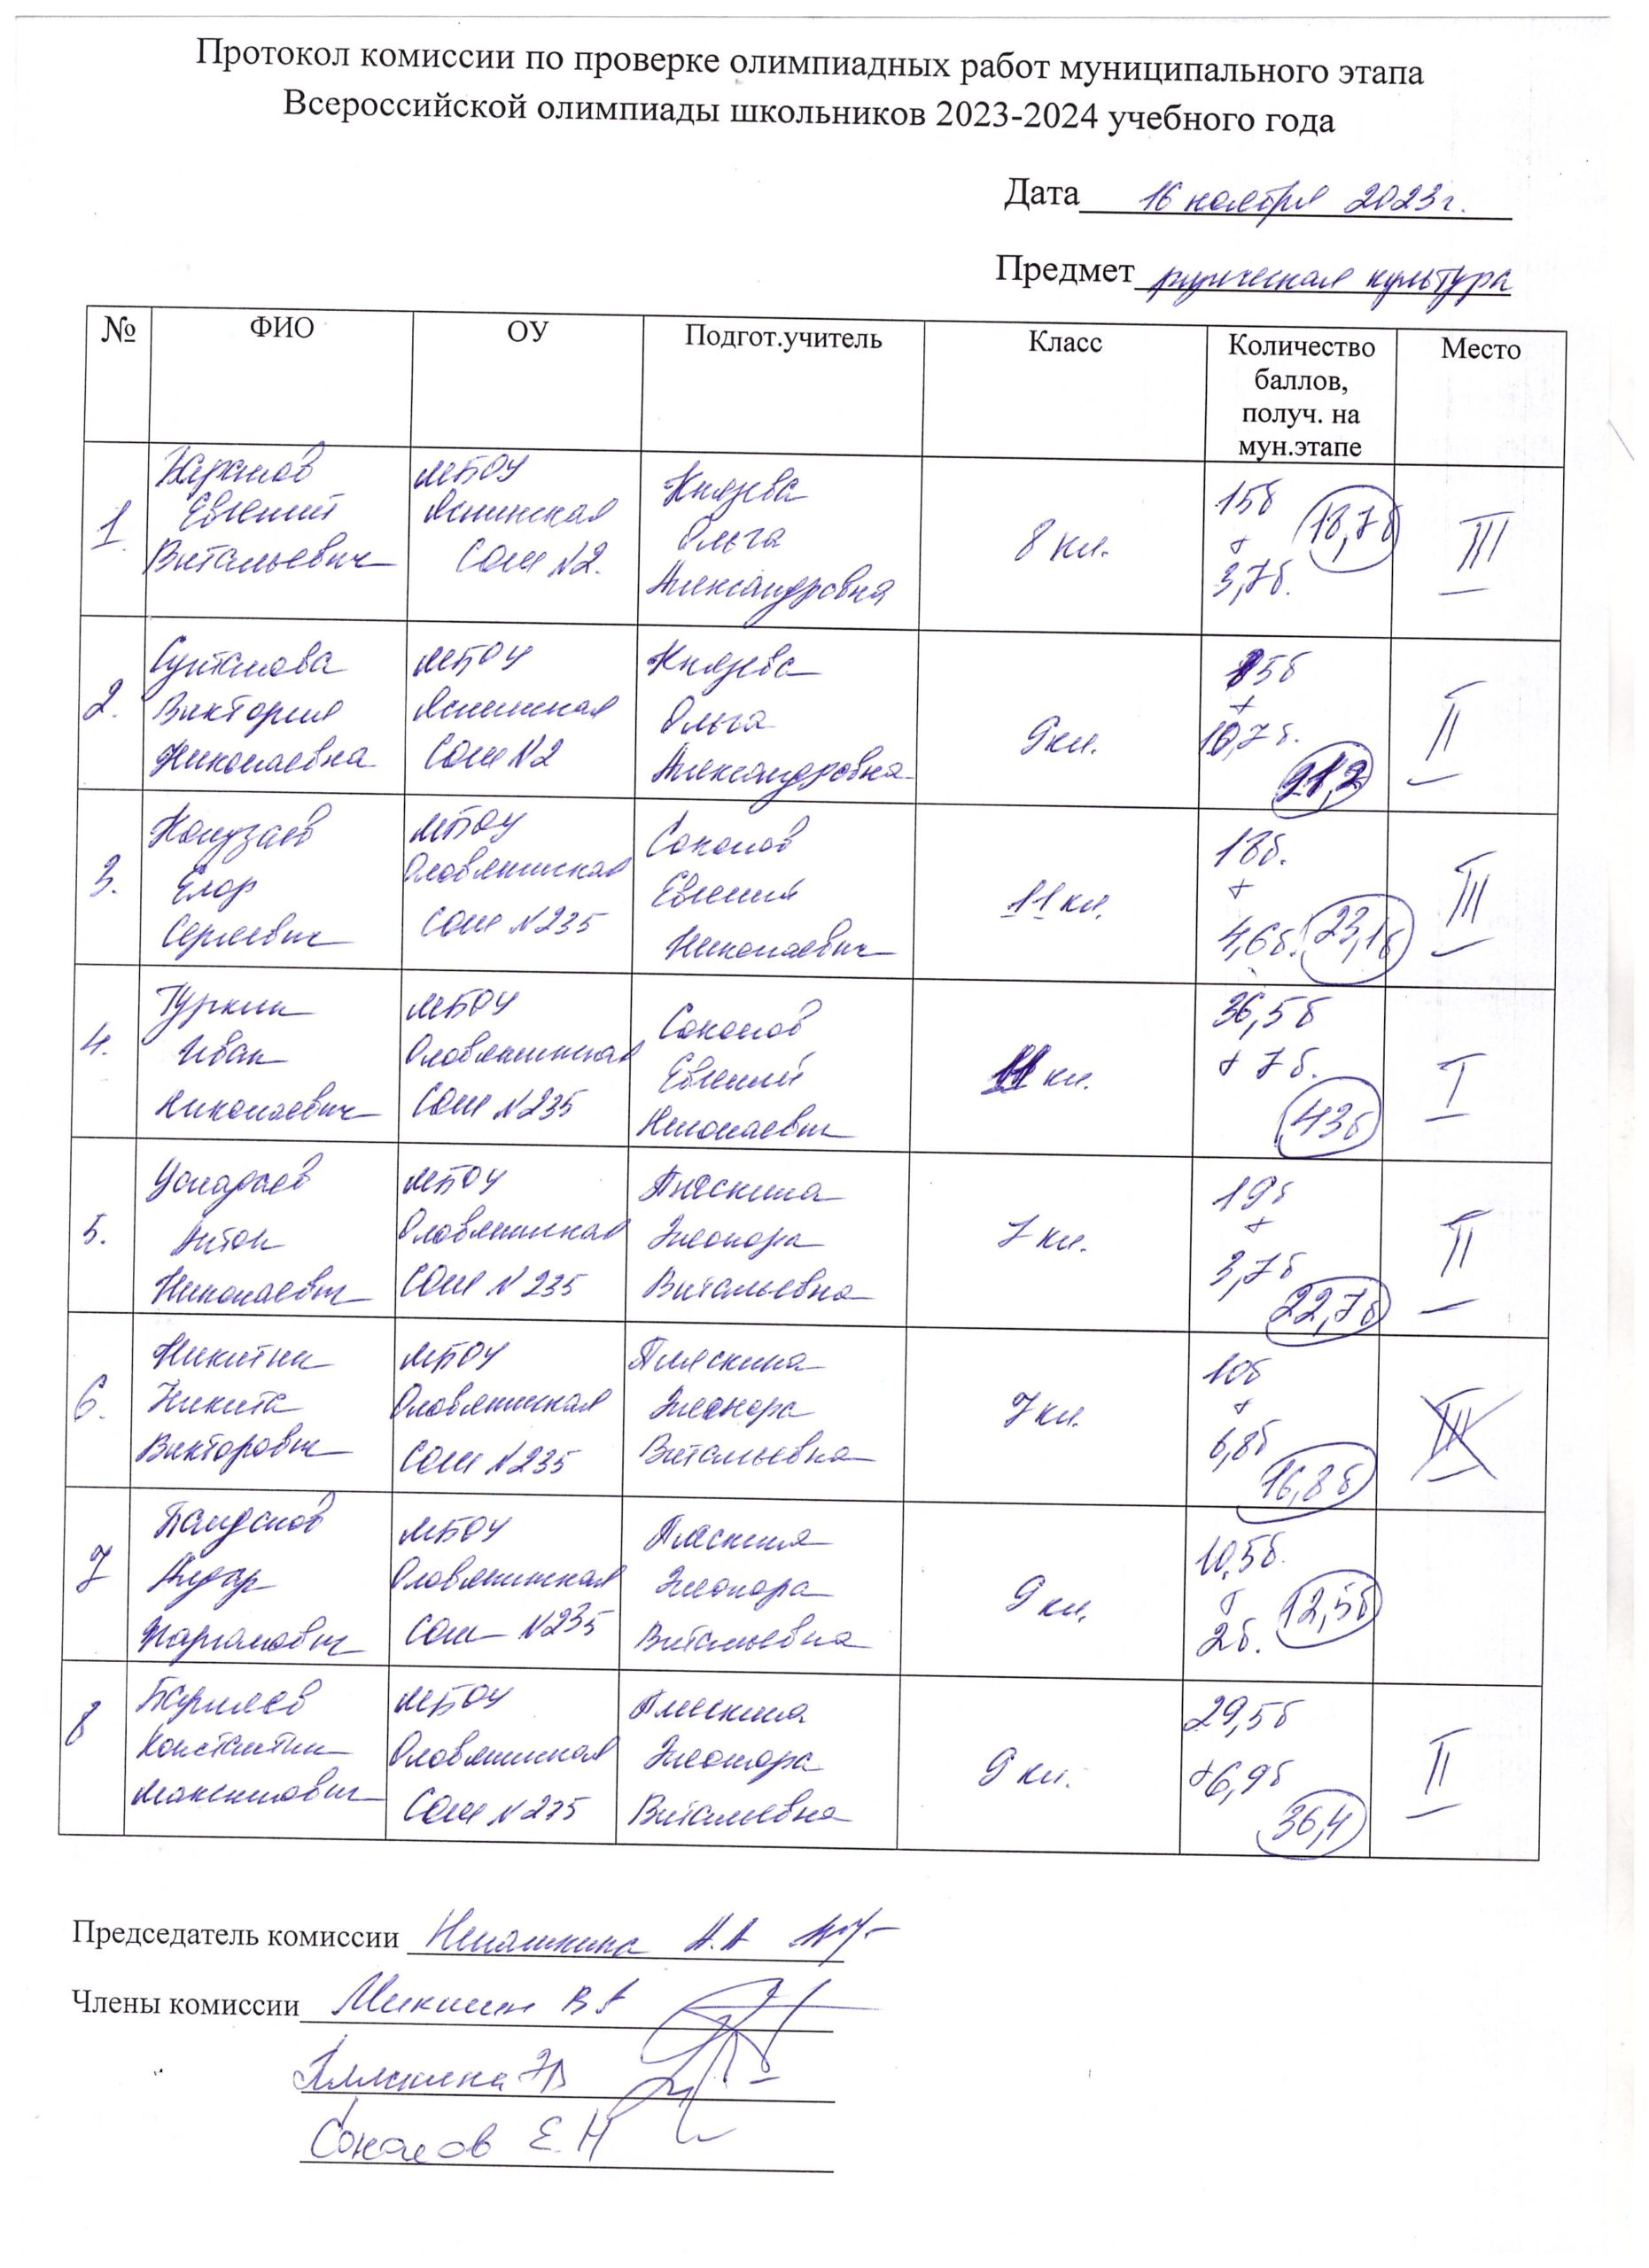 Протокол комиссии по проверке олимпиадных работ муниципального этапа
Всероссийской олимпиады школьников 2023-2024 учебного года
Дата 16 ноября 2023г.
Предмет физическая культура
№ ФИО ОУ Подгот.учитель Класс Количество баллов, получ. на мун.этапе Место
1.
Евгений
Витальевич
МБОУ
Яснинская
СОШ №2.
Князева
Ольга
Александровна
8 кл.
15б
+
3,7б.
18,7б
III
2.
Султанова
Виктория
Николаевна
МБОУ
Яснинская
СОШ №2
Князева
Ольга
Александровна
9кл.
+
10,7б.
II
3.
Егор
Сергеевич
МБОУ
Оловяннинская
СОШ №235
Соколов
Евгений
Николаевич
11 кл.
18б.
+
4,6б.
23,1б
III
4.
Туркин
Иван
Николаевич
МБОУ
Оловяннинская
СОШ №235
Соколов
Евгений
Николаевич
11 кл.
36,5б
+ 7б.
43б
I
5.
Антон
Николаевич
МБОУ
Оловяннинская
СОШ №235
Пляскина
Элеонора
Витальевна
7 кл.
19б
+
3,7б
22,7б
II
6.
Никитин
Никита
Викторович
МБОУ
Оловяннинская
СОШ №235
Пляскина
Элеонора
Витальевна
7 кл.
10б
+
6,8б
16,8б
III
7
МБОУ
Оловяннинская
СОШ №235
Пляскина
Элеонора
Витальевна
9 кл.
10,5б.
+
2б.
12,5б
8
Константин
Максимович
МБОУ
Оловяннинская
СОШ №235
Пляскина
Элеонора
Витальевна
9 кл.
29,5б
+6,9б
36,4
II
Председатель комиссии
Члены комиссии
Пляскина ЭВ
Соколов Е.Н